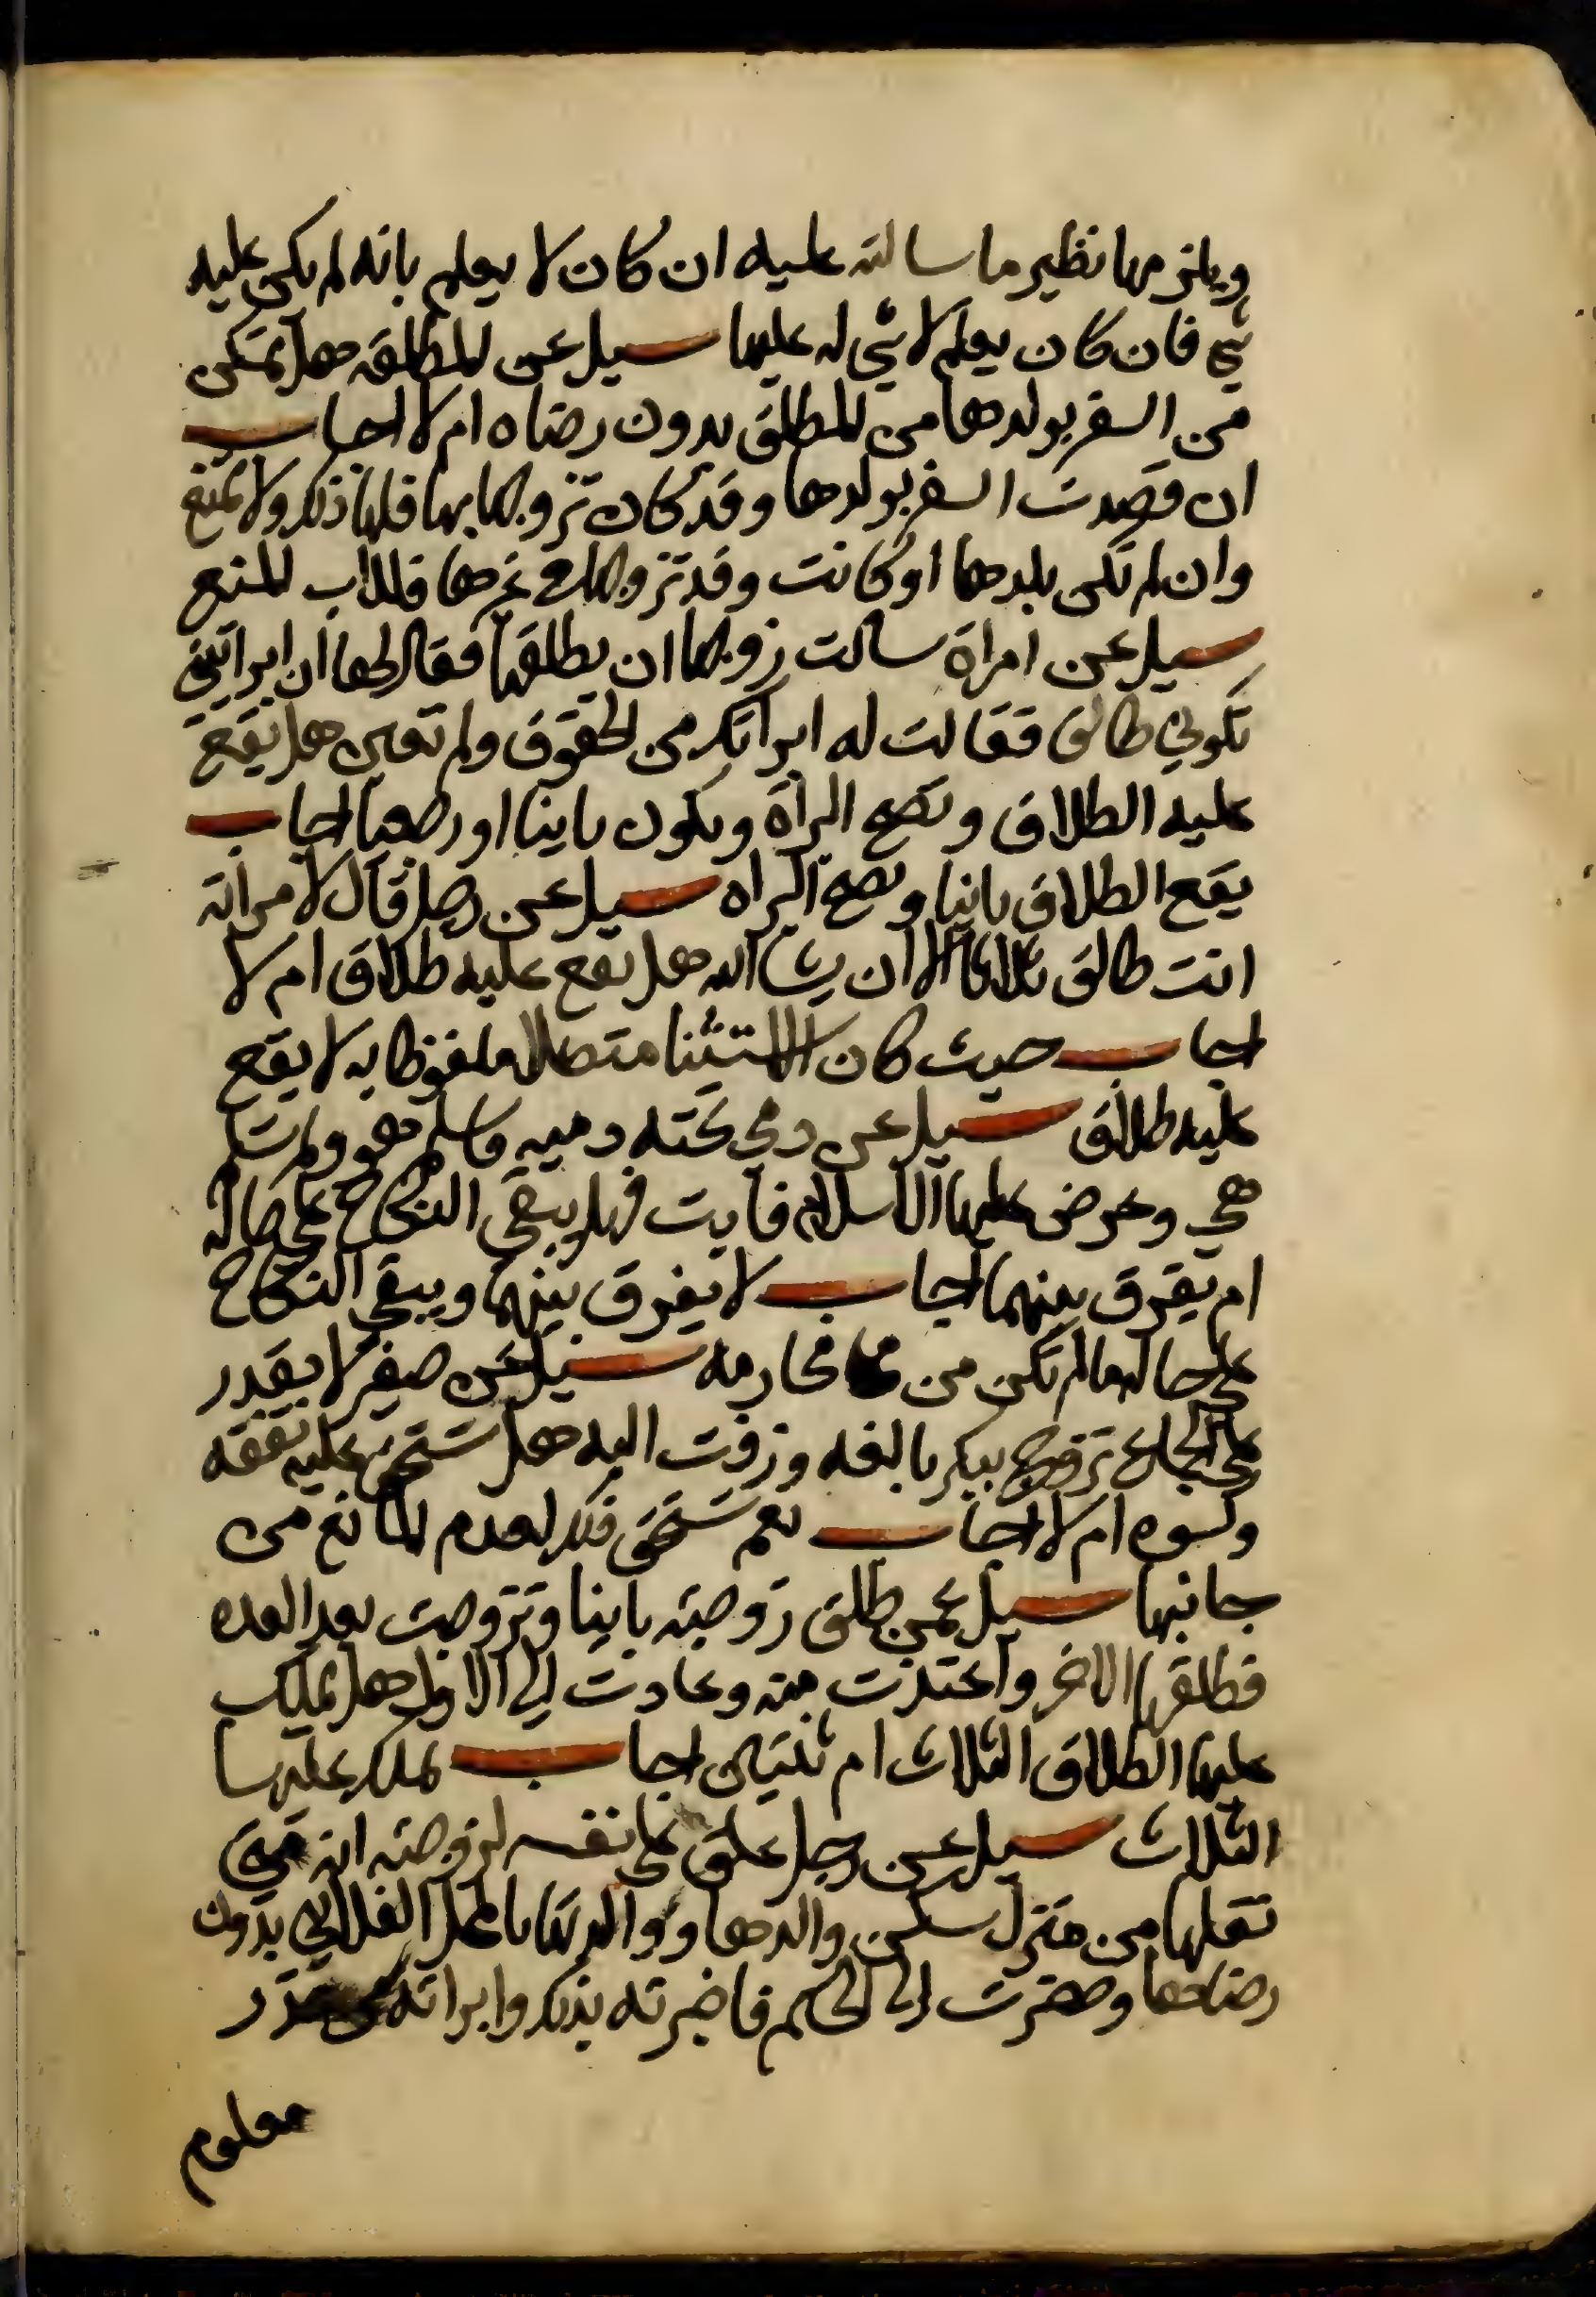 ويلزمها نظير ما سالته عليه ان كان لا يعلم بانه لم يكن عليه
شي فان كان يعلم لا شي له عليها سيل عن المطلقه هل تمكن
من السفر بولدها من المطلق بدون رضاه ام لا اجاب
ان قصدت السفر بولدها وقد كان تزوجها بها فلها ذلك ولا تمنع
وان لم تكن بلدها او كانت وقد تزوجها في غيرها فللاب المنع
سيل عن امراة سالت زوجها ان يطلقها فقال لها ان ابراتيني
تكوني طالق فقالت له ابراتك من الحقوق ولم تعين هل يقع
عليه الطلاق وتصح البراة ويكون باينا او رجعيا اجاب
يقع الطلاق باينا وتصح البراه سيل عن رجل قال لامراته
انت طالق ثلاثا الا ان يشا الله هل يقع عليه طلاق ام لا
اجاب حيث كان الاستثنا متصلا ملفوظا به لا يقع
عليه طلاق سيل عن دمي تحته دميه واسلم هو ولم تسلم
هي وعرض عليها الاسلام فابت فهل يبقى النكاح على حاله
ام يفرق بينهما اجاب لا يفرق بينهما ويبقى النكاح
على حاله ما لم تكن من محارمه سيل عن صغير لا يقدر
على الجماع تزوج ببكر بالغه وزفت اليه هل تستحق عليه نفقه
وكسوه ام لا اجاب نعم تستحق ذلك لعدم المانع من
جانبها سيل عمن طلق زوجته باينا وتزوجت بعد العده
فطلقها الاخر واعتدت منه وعادت الى الاول هل يملك
عليها الطلاق الثلاث ام ثنتين اجاب يملك عليها
الثلاث سيل عن رجل علق على نفسه لزوجته انه متى
نقلها من منزل سكن والدها ووالدتها بالمحل الفلاني بدون
رضاها وحضرت الى الحاكم فاخبرته بذلك وابراته من قدر
معلوم